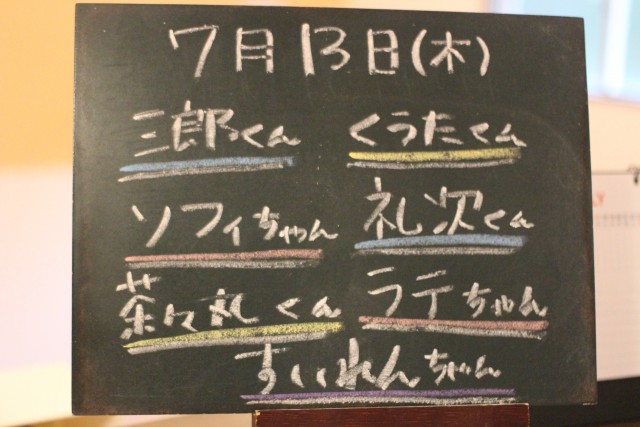 7月13日(木)
三郎くん くうたくん
ソフィちゃん 礼次くん
茶々礼くん ラテちゃん
すいれんちゃん